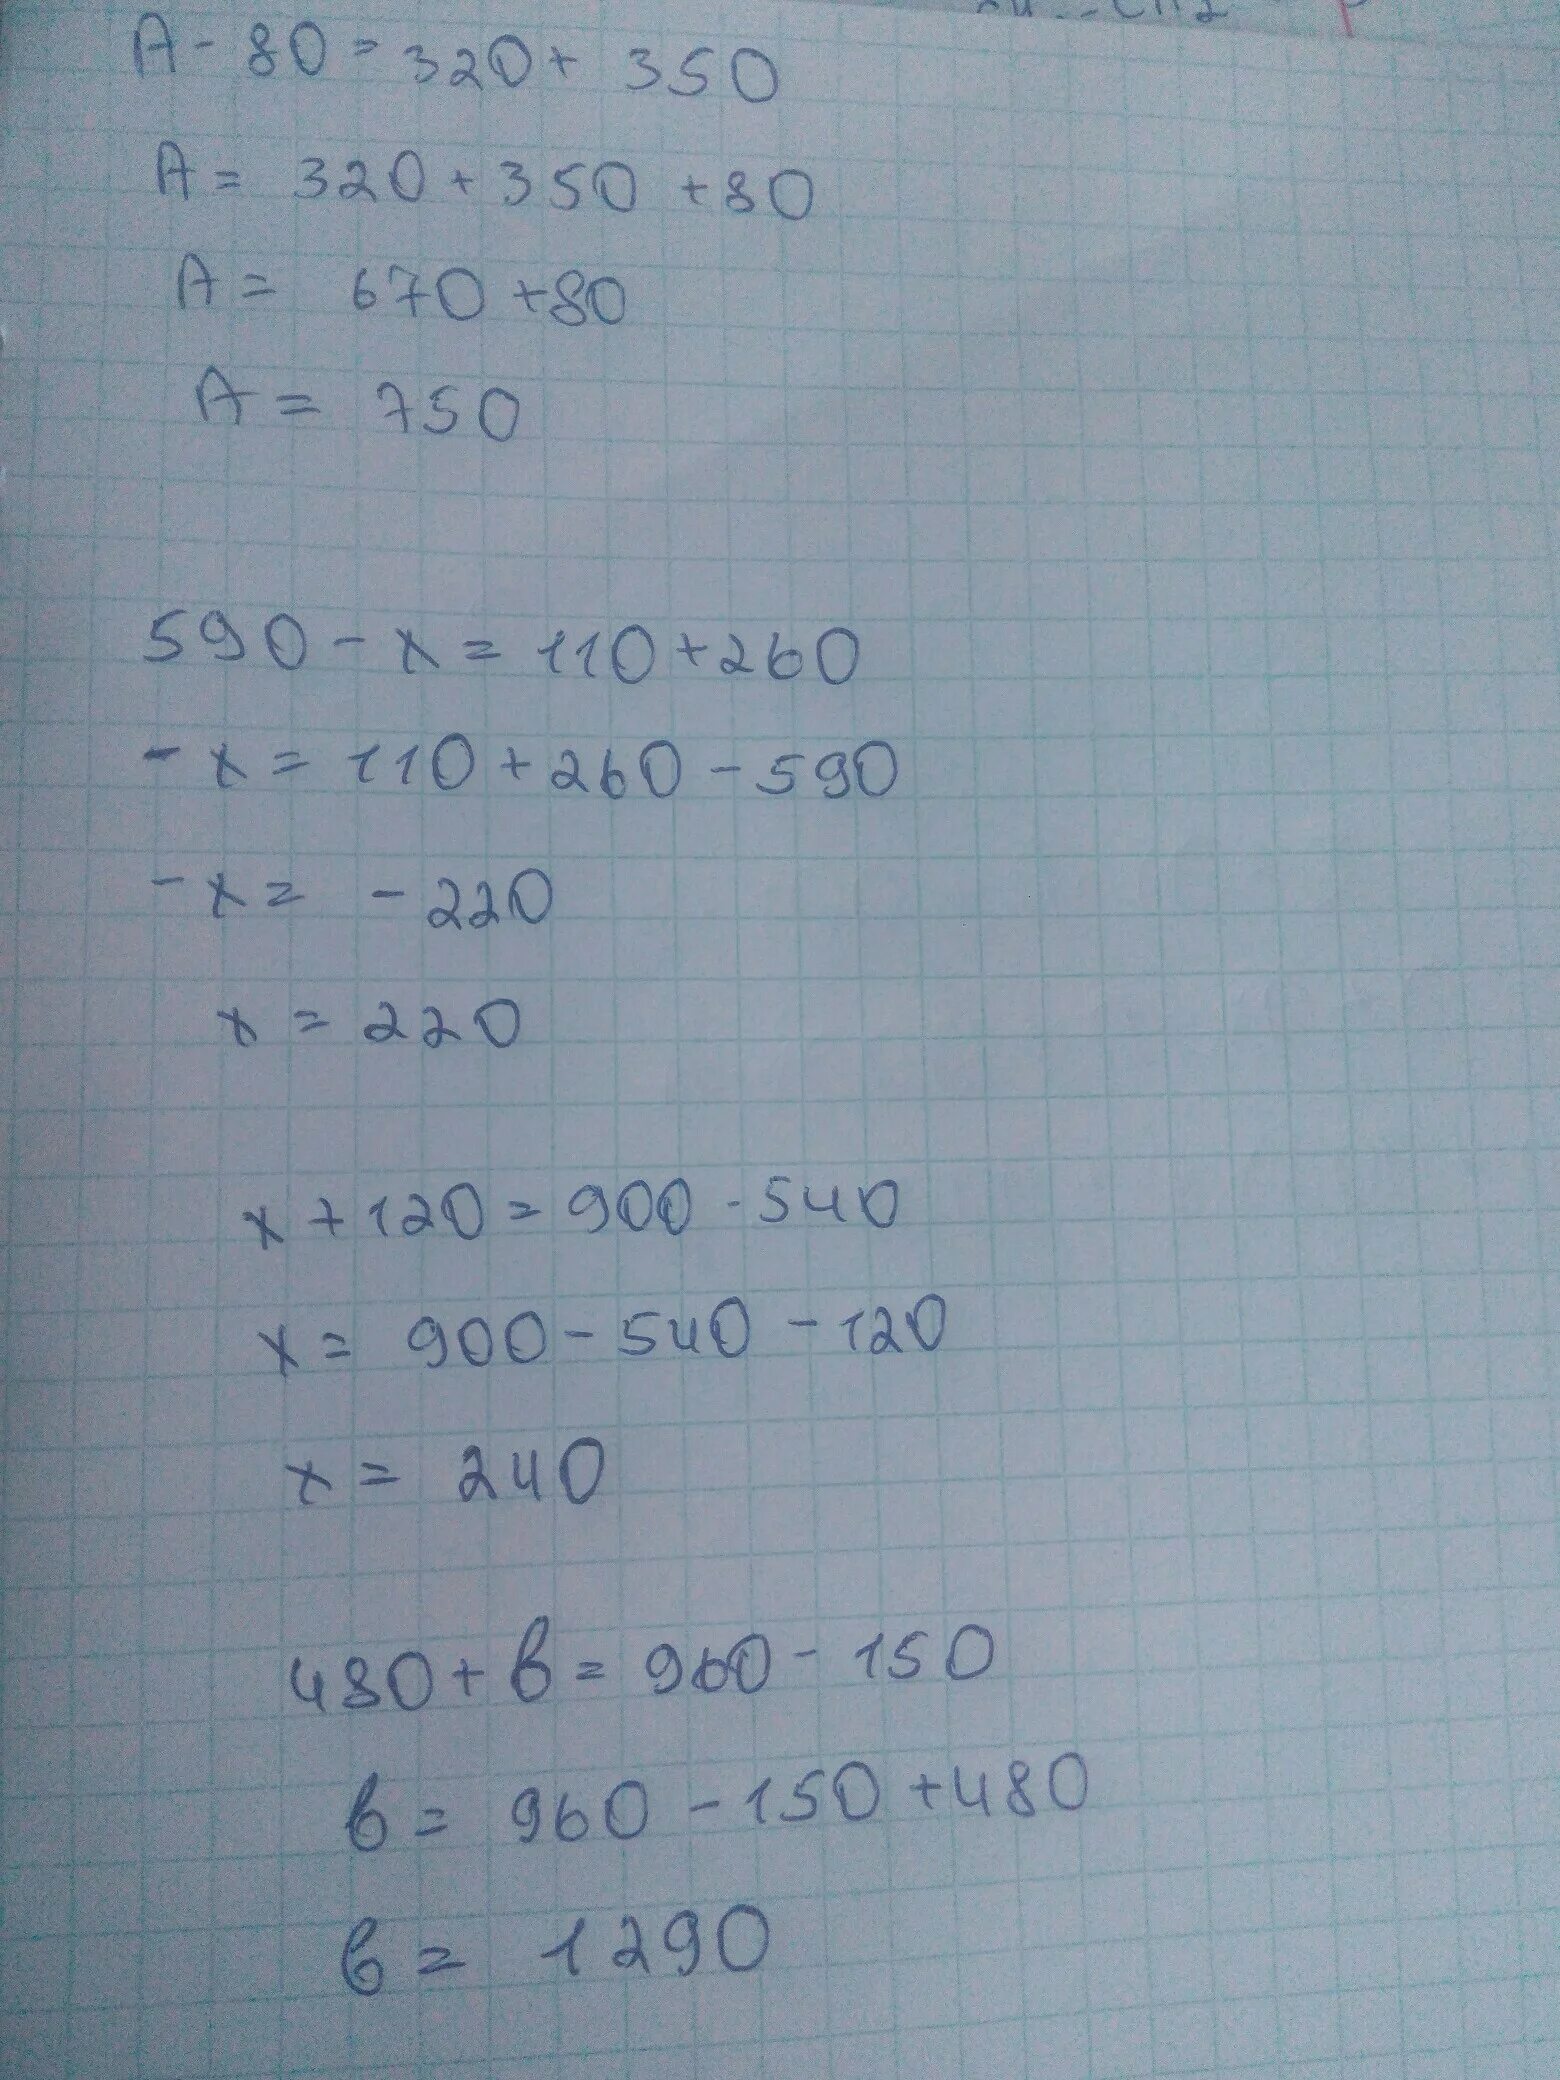 A - 80 = 320 + 350
A = 320 + 350 + 80
A = 670 + 80
A = 750
590 - x = 110 + 260
- x = 110 + 260 - 590
- x = - 220
x = 220
x + 120 = 900 - 540
x = 900 - 540 - 120
x = 240
480 + в = 960 - 150
в = 960 - 150 + 480
в = 1290